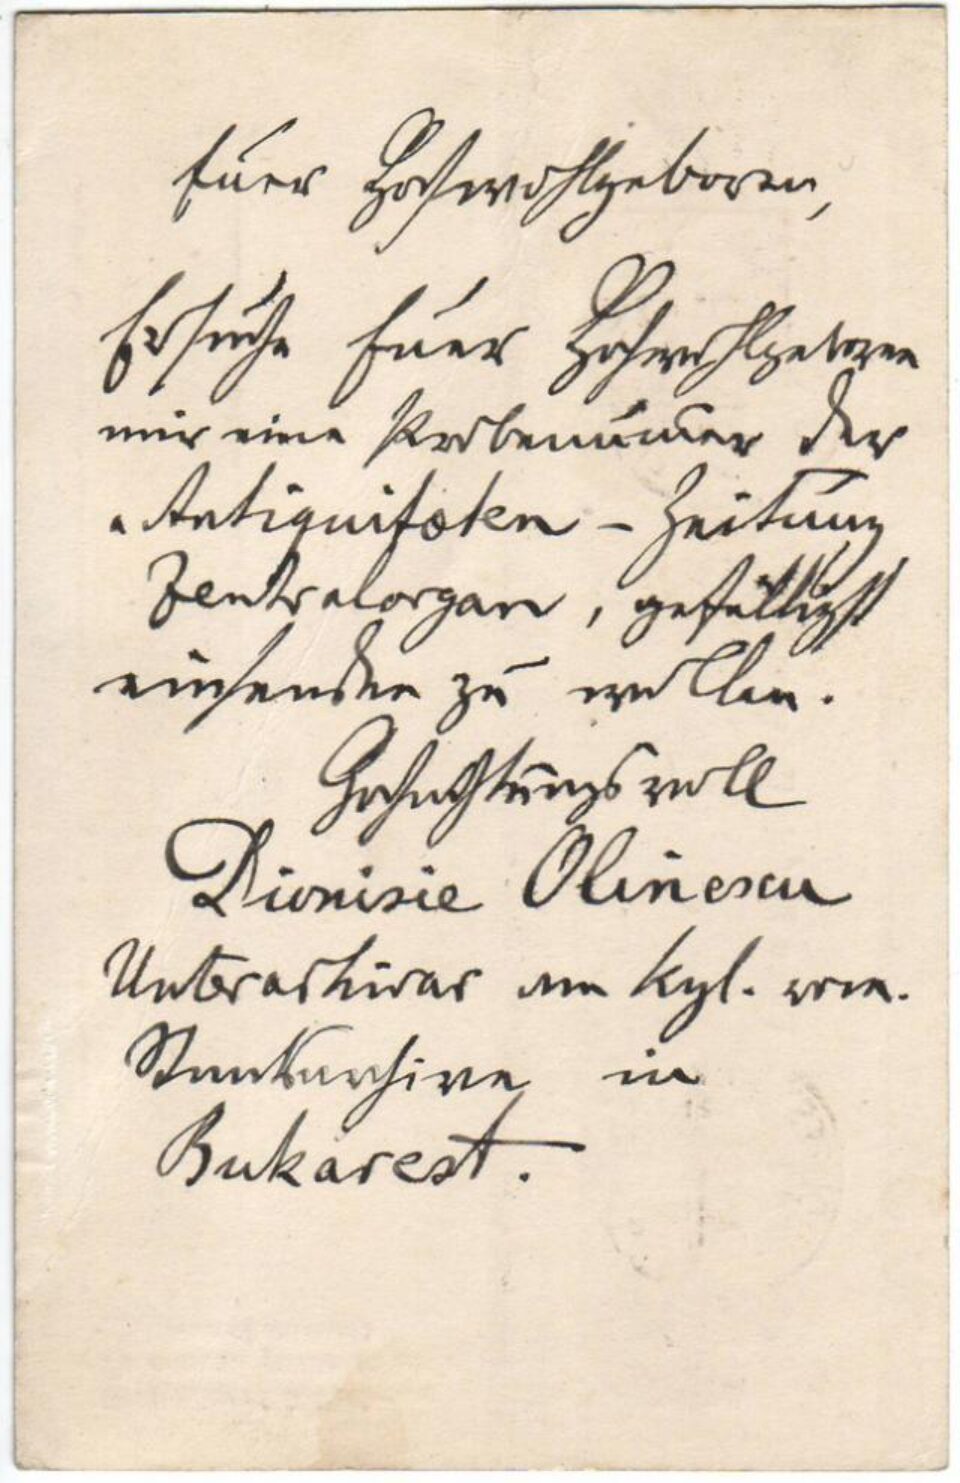 Euer Hochwohlgeboren,
Ersuche Euer Hochwohlgeboren
mir eine Probenum̅er der
„Antiquitäten - Zeitung
Zentralorgan, gefälligst
einsenden zu wollen.
Hochachtungsvoll
Dionisie Olinescu
Unterarchivar am kgl. rom.
Staatsarchive in
Bukarest.